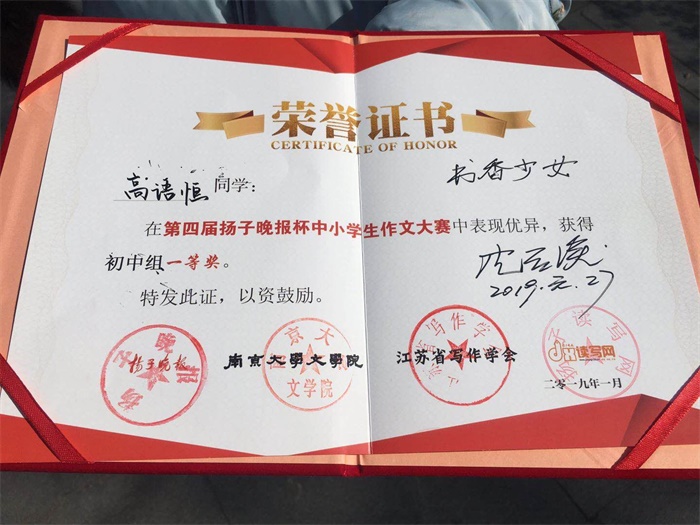 荣誉证书
CERTIFICATE OF HONOR
高语恒同学:
书香少女
在第四届扬子晚报杯中小学生作文大赛中表现优异，获得
初中组一等奖。
2019.元.27
特发此证，以资鼓励。
扬子晚报
南京大学文学院
江苏省写作学会
读写网
南京大学
文学院
二〇一九年一月